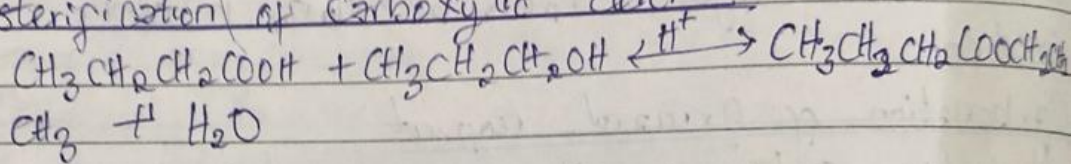 sterification of carboxylic
CH₃CH₂CH₂COOH + CH₃CH₂CH₂OH ⇌ H⁺ CH₃CH₂CH₂COOCH₂CH₂
CH₃ + H₂O